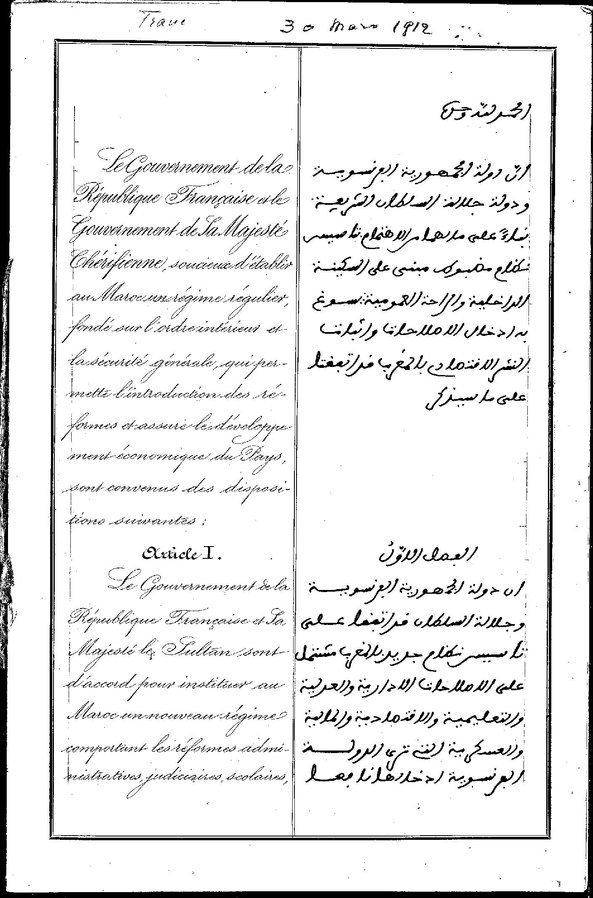 30 Mars 1912
Le Gouvernement de la
République Française et le
Gouvernement de Sa Majesté
Chérifienne, soucieux d'établir
au Maroc un régime régulier,
fondé sur l'ordre intérieur et
la sécurité générale, qui per-
mette l'introduction des ré-
formes et assure le développe-
ment économique du Pays,
sont convenus des disposi-
tions suivantes :
Article I.
Le Gouvernement de la
République Française et Sa
Majesté le Sultan sont
d'accord pour instituer au
Maroc un nouveau régime
comportant les réformes admi-
nistratives, judiciaires, scolaires,
الحمد لله وحده
ان دولة الجمهورية الفرنسوية
ودولة جلالة السلطان الشريفة
بناء على ما لهما من الاهتمام بتاسيس
نظام مضبوط مبني على السكينة
الداخلية والراحة العمومية يسوغ
به ادخال الاصلاحات واثبات
النشر الاقتصادي بالمغرب قد اتفقتا
على ما سيذكر
الفصل الاول
ان دولة الجمهورية الفرنسوية
وجلالة السلطان قد اتفقا على
تاسيس نظام جديد بالمغرب مشتمل
على الاصلاحات الادارية والعدلية
والتعليمية والاقتصادية والمالية
والعسكرية التي ترى الدولة
الفرنسوية ادخالها نافعا